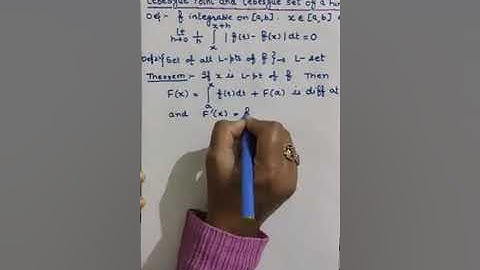 Lebesgue Point and Lebesgue set of a fun
Def:- f integrable on [a,b]. x ∈ [a,b] a
lt h→0 1/h ∫ₓˣ⁺ʰ | f(t) - f(x) | dt = 0
Def:- {Set of all L-pts of f} → L-set
Theorem:- If x is L-pt of f Then
F(x) = ∫ₐˣ f(t)dt + F(a) is diff at
and F'(x) = f